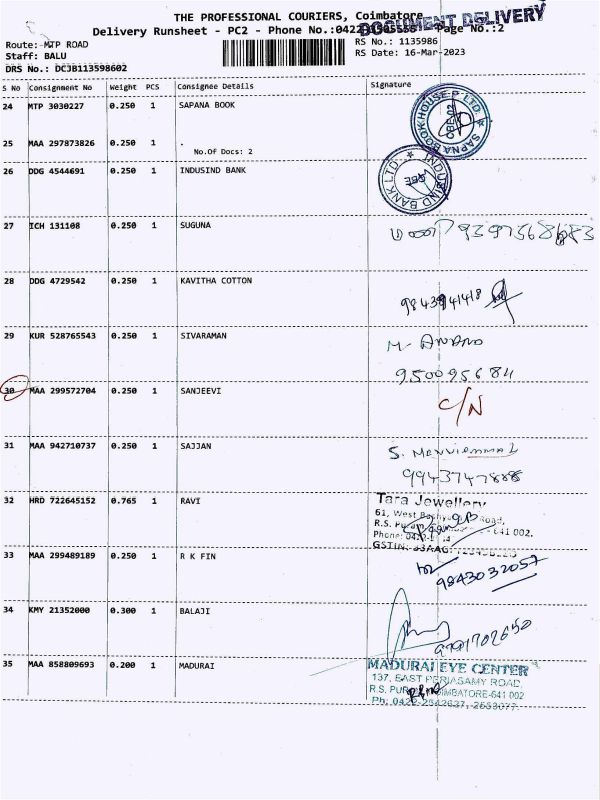 THE PROFESSIONAL COURIERS, Coimbatore
DOCUMENT DELIVERY
Delivery Runsheet - PC2 - Phone No.:0422 Page No.:2
Route:-MTP ROAD
RS No.: 1135986
Staff: BALU
RS Date: 16-Mar-2023
DRS No.: DCJB113598602
S No Consignment No Weight PCS Consignee Details Signature
24 MTP 3030227 0.250 1 SAPANA BOOK
25 MAA 297873826 0.250 1 .
No.Of Docs: 2
26 DDG 4544691 0.250 1 INDUSIND BANK
INDUSIND BANK LTD
27 ICH 131108 0.250 1 SUGUNA
28 DDG 4729542 0.250 1 KAVITHA COTTON
29 KUR 528765543 0.250 1 SIVARAMAN
M. ANAND
950095684
30 MAA 299572704 0.250 1 SANJEEVI
C/N
31 MAA 942710737 0.250 1 SAJJAN
32 HRD 722645152 0.765 1 RAVI
Tara Jewellery
61, West Road,
R.S. 641 002.
Phone:
33 MAA 299489189 0.250 1 R K FIN
9843032057
34 KMY 21352000 0.300 1 BALAJI
35 MAA 858809693 0.200 1 MADURAI
MADURAI EYE CENTER
137, EAST PERIASAMY ROAD,
R.S. COIMBATORE-641 002
Ph: 0422-2542637,